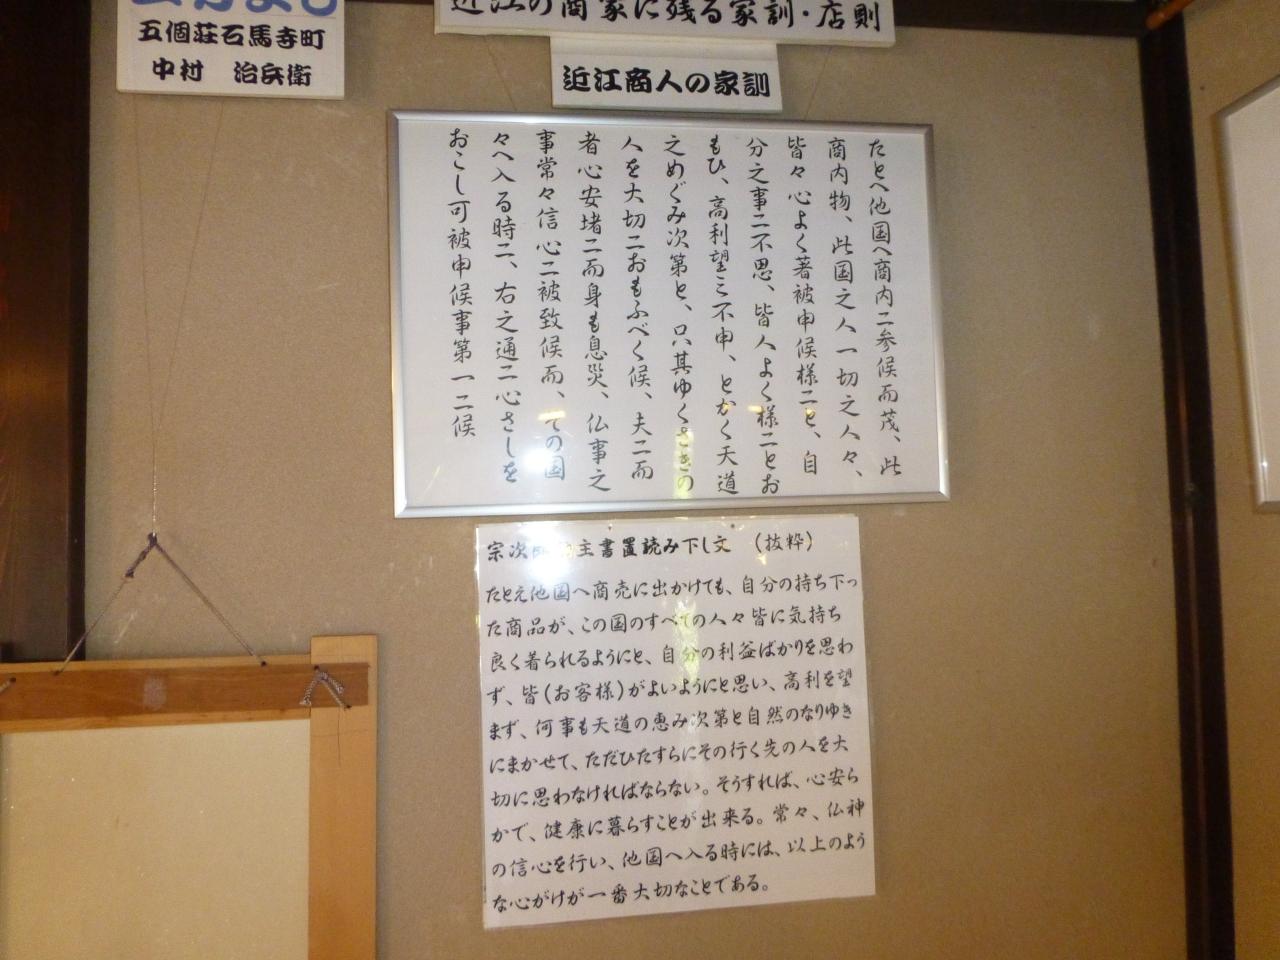 五個荘石馬寺町
中村　治兵衛
近江の商家に残る家訓・店則
近江商人の家訓
たとへ他国へ商内ニ参候而茂、此
商内物、此国之人一切之人々、
皆々心よく著被申候様ニと、自
分之事ニ不思、皆人よく様ニとお
もひ、高利望ミ不申、とかく天道
之めぐみ次第と、只其ゆくさきの
人を大切ニおもふべく候、夫ニ而
者心安堵ニ而身も息災、仏事之
事常々信心ニ被致候而、その国
々へ入る時ニ、右之通ニ心さしを
おこし可被申候事第一ニ候
宗次 主書置読み下し文　（抜粋）
たとえ他国へ商売に出かけても、自分の持ち下っ
た商品が、この国のすべての人々皆に気持ち
良く着られるようにと、自分の利益ばかりを思わ
ず、皆（お客様）がよいようにと思い、高利を望
まず、何事も天道の恵み次第と自然のなりゆき
にまかせて、ただひたすらにその行く先の人を大
切に思わなければならない。そうすれば、心安ら
かで、健康に暮らすことが出来る。常々、仏神
の信心を行い、他国へ入る時には、以上のよう
な心がけが一番大切なことである。